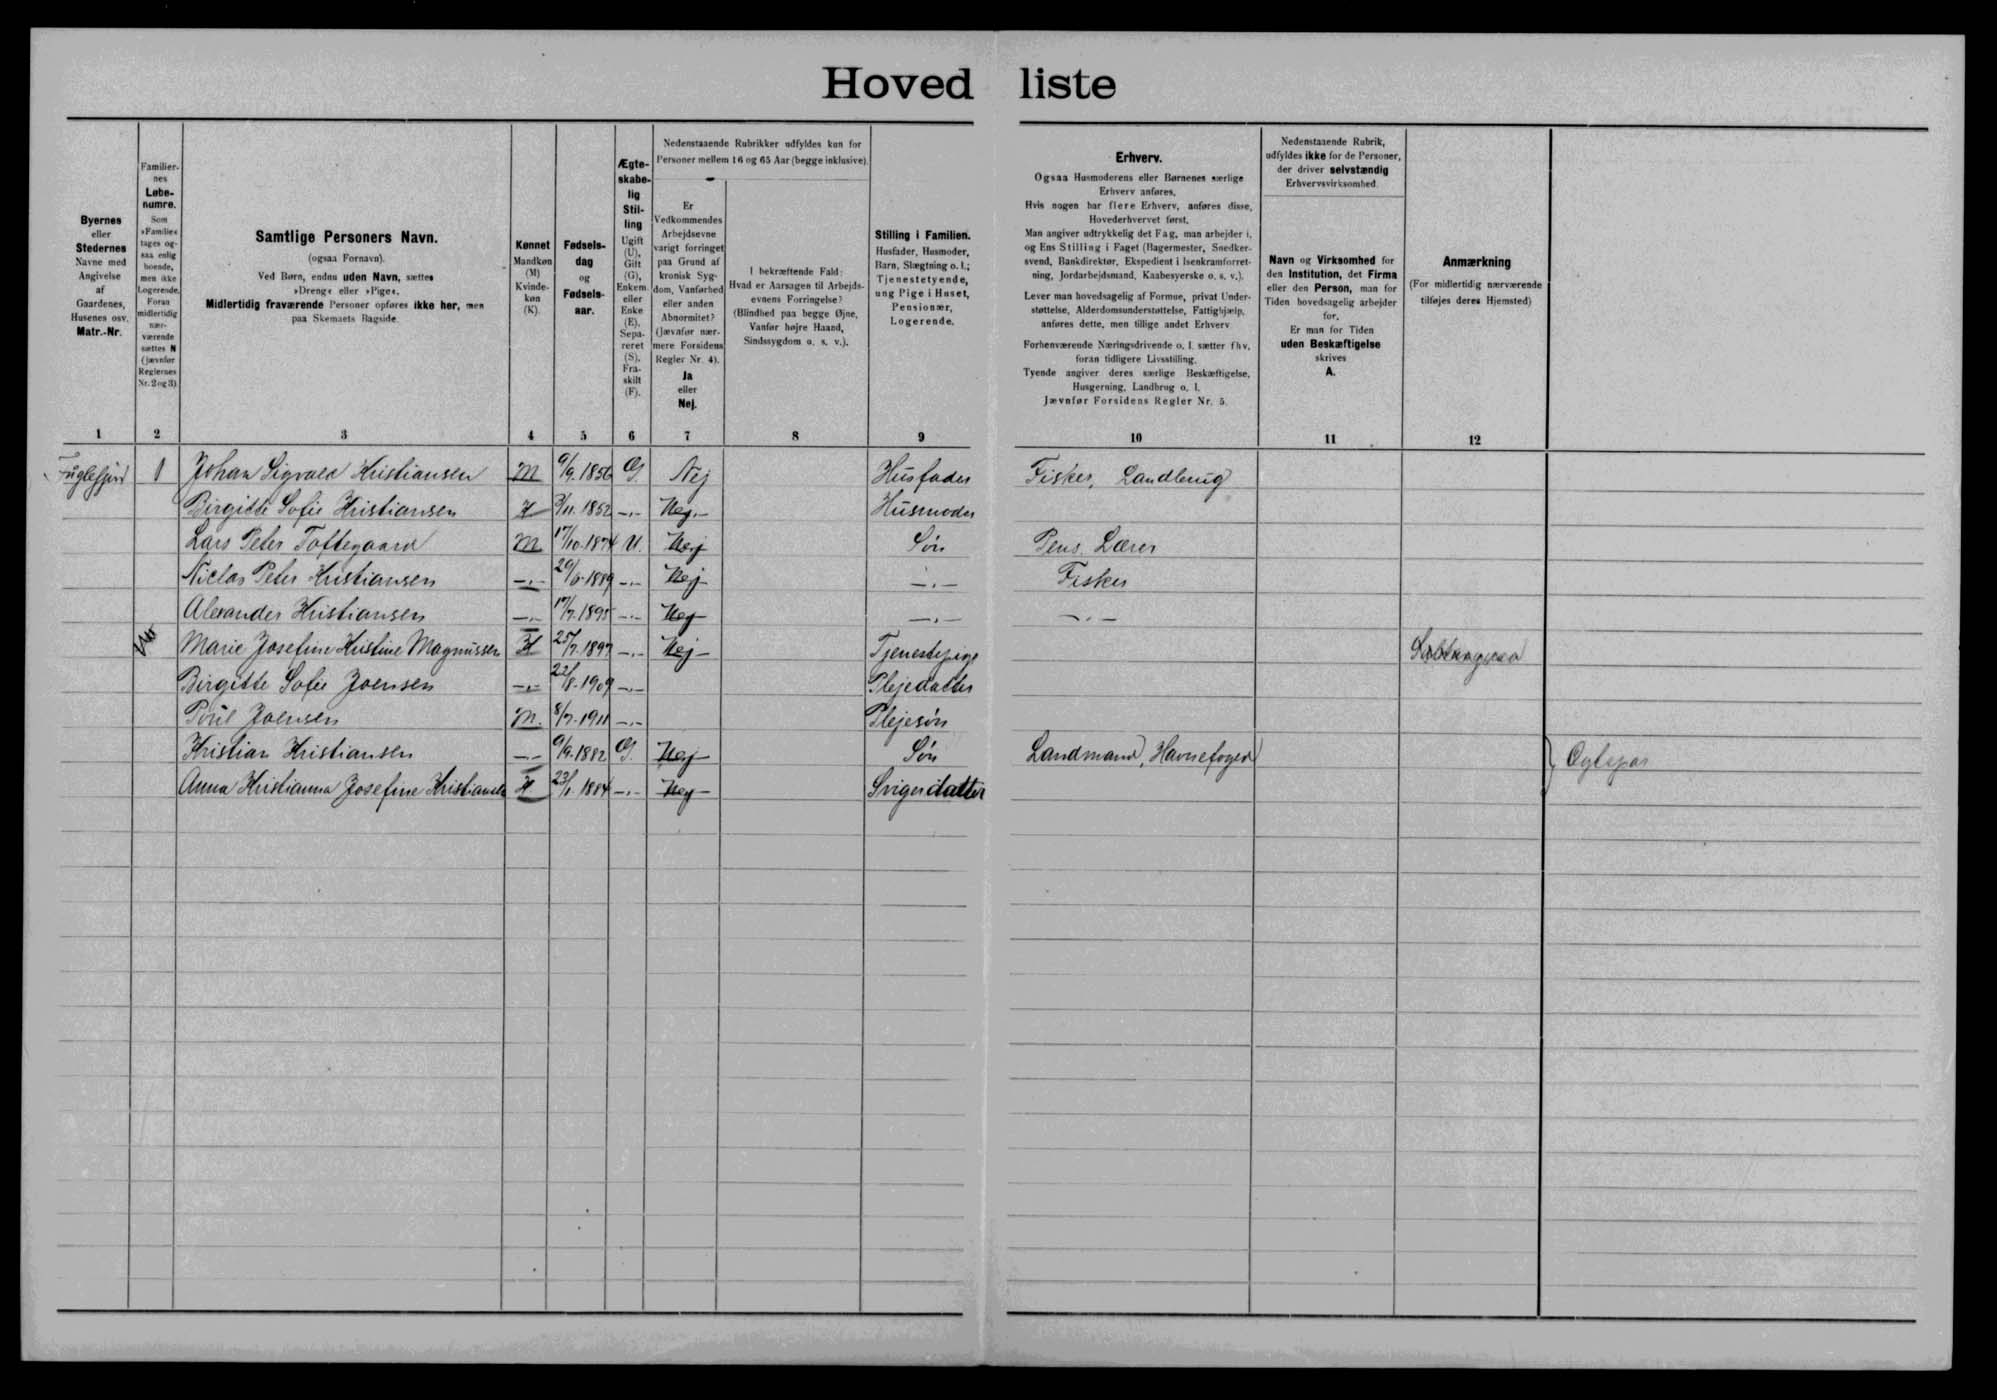 Hovedliste
Byernes
eller
Stedernes
Navne med
Angivelse
af
Gaardenes,
Husenes osv.
Matr.-Nr.
Familier-
nes
Løbe-
numre.
Som
»Familie«
tages og-
saa enlig
boende,
men ikke
Logerende.
Foran
midlertidig
nær-
værende
sættes N
(jævnfør
Reglernes
Nr. 2 og 3)
Samtlige Personers Navn.
(ogsaa Fornavn).
Ved Børn, endnu uden Navn, sættes
»Dreng« eller »Pige«.
Midlertidig fraværende Personer opføres ikke her, men
paa Skemaets Bagside.
Kønnet
Mandkøn
(M)
Kvinde-
køn
(K).
Fødsels-
dag
og
Fødsels-
aar.
Ægte-
skabe-
lig
Stil-
ling
Ugift
(U),
Gift
(G),
Enkem.
eller
Enke
(E),
Sepa-
reret
(S),
Fra-
skilt
(F).
Nedenstaaende Rubrikker udfyldes kun for
Personer mellem 16 og 65 Aar (begge inklusive).
Er
Vedkommendes
Arbejdsevne
varigt forringet
paa Grund af
kronisk Syg-
dom, Vanførhed
eller anden
Abnormitet?
(Jævnfør nær-
mere Forsidens
Regler Nr. 4).
Ja
eller
Nej.
I bekræftende Fald:
Hvad er Aarsagen til Arbejds-
evnens Forringelse?
(Blindhed paa begge Øjne,
Vanfør højre Haand,
Sindssygdom o. s. v.).
Stilling i Familien.
Husfader, Husmoder,
Barn, Slægtning o. l.;
Tjenestetyende,
ung Pige i Huset,
Pensionær,
Logerende.
Erhverv.
Ogsaa Husmoderens eller Børnenes særlige
Erhverv anføres.
Hvis nogen har flere Erhverv, anføres disse,
Hovederhvervet først.
Man angiver udtrykkelig det Fag, man arbejder i,
og Ens Stilling i Faget (Bagermester, Snedker-
svend, Bankdirektør, Ekspedient i Isenkramforret-
ning, Jordarbejdsmand, Kaabesyerske o. s. v.).
Lever man hovedsagelig af Formue, privat Under-
støttelse, Alderdomsunderstøttelse, Fattighjælp,
anføres dette, men tillige andet Erhverv
Forhenværende Næringsdrivende o. l. sætter fhv.
foran tidligere Livsstilling.
Tyende angiver deres særlige Beskæftigelse,
Husgerning, Landbrug o. l.
Jævnfør Forsidens Regler Nr. 5.
Nedenstaaende Rubrik,
udfyldes ikke for de Personer,
der driver selvstændig
Erhvervsvirksomhed.
Navn og Virksomhed for
den Institution, det Firma
eller den Person, man for
Tiden hovedsagelig arbejder
for.
Er man for Tiden
uden Beskæftigelse
skrives
A.
Anmærkning
(For midlertidig nærværende
tilføjes deres Hjemsted)
1 2 3 4 5 6 7 8 9 10 11 12
Fuglefjord 1 Johan Sigvald Kristiansen M 9/9.1856 G. Nej Husfader Fisker, Landbrug
Birgitte Sofie Kristiansen K 3/11.1852 -.- Nej.- Husmoder
Lars Peter Toftegaard M 17/10.1874 U. Nej Søn Pens. Lærer
Niclas Peter Kristiansen -.- 1889 -.- Nej -.- Fisker
Alexander Kristiansen -.- 17/7.1895 -.- Nej -.- -.-
Marie Josefine Kristine Magnussen K 25/7.1897 -.- Nej Tjenestepige
Birgitte Sofie Joensen -.- 22/8.1909 -.- Plejedatter
Poul Joensen M. 8/7.1911 -.- Plejesøn
Kristian Kristiansen -.- 9/9.1882 G. Nej Søn Landmand, Havnefoged } Ægtepar
Anna Kristianna Josefine Kristiansen K 23/1.1884 -.- Nej Svigerdatter